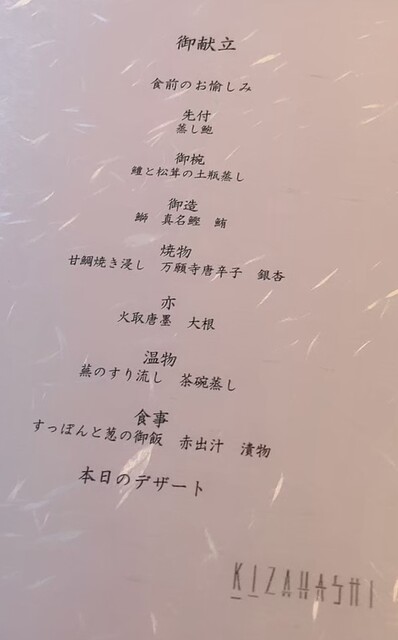 御献立
食前のお愉しみ
先付
蒸し鮑
御椀
鱧と松茸の土瓶蒸し
御造
鰤 真名鰹 鮪
焼物
甘鯛焼き浸し 万願寺唐辛子 銀杏
亦
火取唐墨 大根
温物
蕪のすり流し 茶碗蒸し
食事
すっぽんと葱の御飯 赤出汁 漬物
本日のデザート
KIZAHASHI